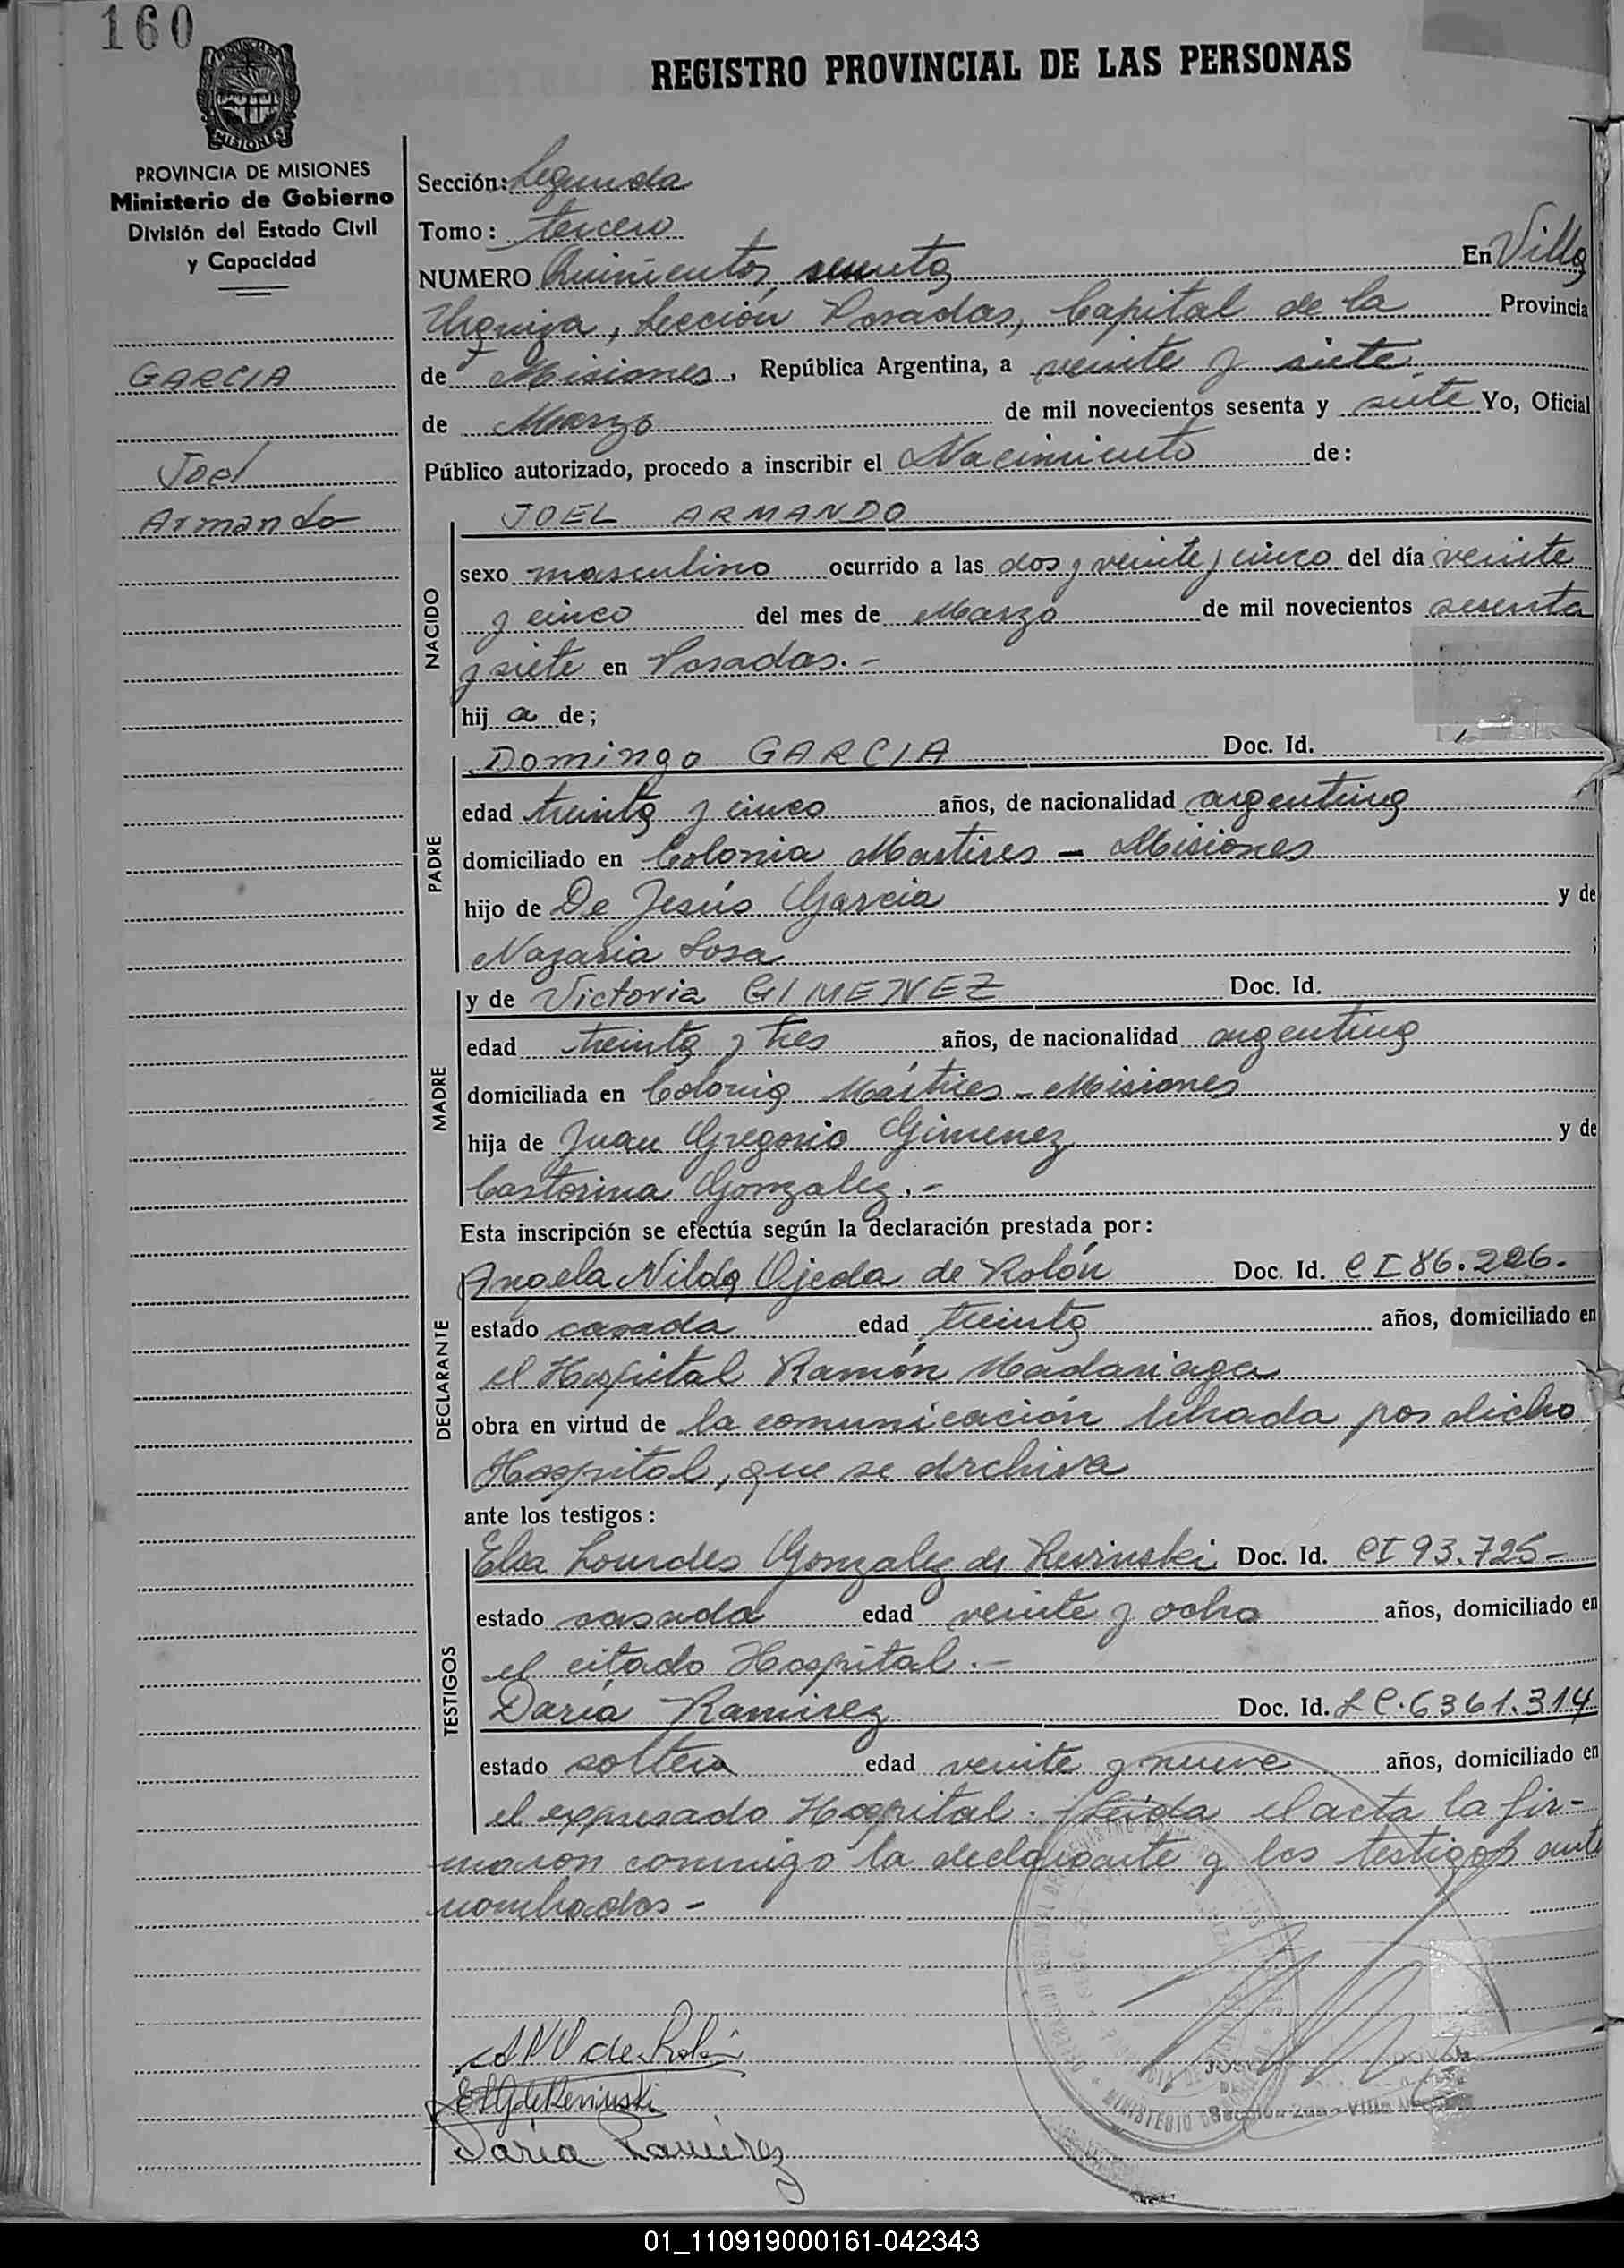 160
REGISTRO PROVINCIAL DE LAS PERSONAS
PROVINCIA DE
MISIONES
PROVINCIA DE MISIONES
Ministerio de Gobierno
División del Estado Civil
y Capacidad
GARCIA
Joel
Armando
Sección: Segunda
Tomo: tercero
NUMERO Quinientos sesenta En Villa
Urquiza, Sección Posadas, Capital de la Provincia
de Misiones, República Argentina, a veinte y siete
de Marzo de mil novecientos sesenta y siete Yo, Oficial
Público autorizado, procedo a inscribir el Nacimiento de:
NACIDO
JOEL ARMANDO
sexo masculino ocurrido a las dos y veinte y cinco del día veinte
y cinco del mes de Marzo de mil novecientos sesenta
y siete en Posadas.-
hij a de;
PADRE
Domingo GARCIA Doc. Id.
edad treinta y cinco años, de nacionalidad argentina
domiciliado en Colonia Martires - Misiones
hijo de De Jesús Garcia y de
Nazaria Sosa ;
MADRE
y de Victoria GIMENEZ Doc. Id.
edad treinta y tres años, de nacionalidad argentina
domiciliada en Colonia Mártires - Misiones
hija de Juan Gregorio Gimenez y de
Castorina Gonzalez.-
Esta inscripción se efectúa según la declaración prestada por:
DECLARANTE
Angela Nilda Ojeda de Rolón Doc. Id. C I 86.226.
estado casada edad treinta años, domiciliado en
el Hospital Ramón Madariaga
obra en virtud de la comunicación librada por dicho
Hospital, que se archiva
ante los testigos:
TESTIGOS
Elsa Lourdes Gonzalez de Doc. Id. CI 93.725-
estado casada edad veinte y ocho años, domiciliado en
el citado Hospital.-
Daria Ramirez Doc. Id. L C. 6361.314
estado soltera edad veinte y nueve años, domiciliado en
el expresado Hospital. Leida el acta la fir-
maron conmigo la declarante y los testigos ante
nombrados-
de Rolón
Daria Ramirez
MINISTERIO
01_110919000161-042343